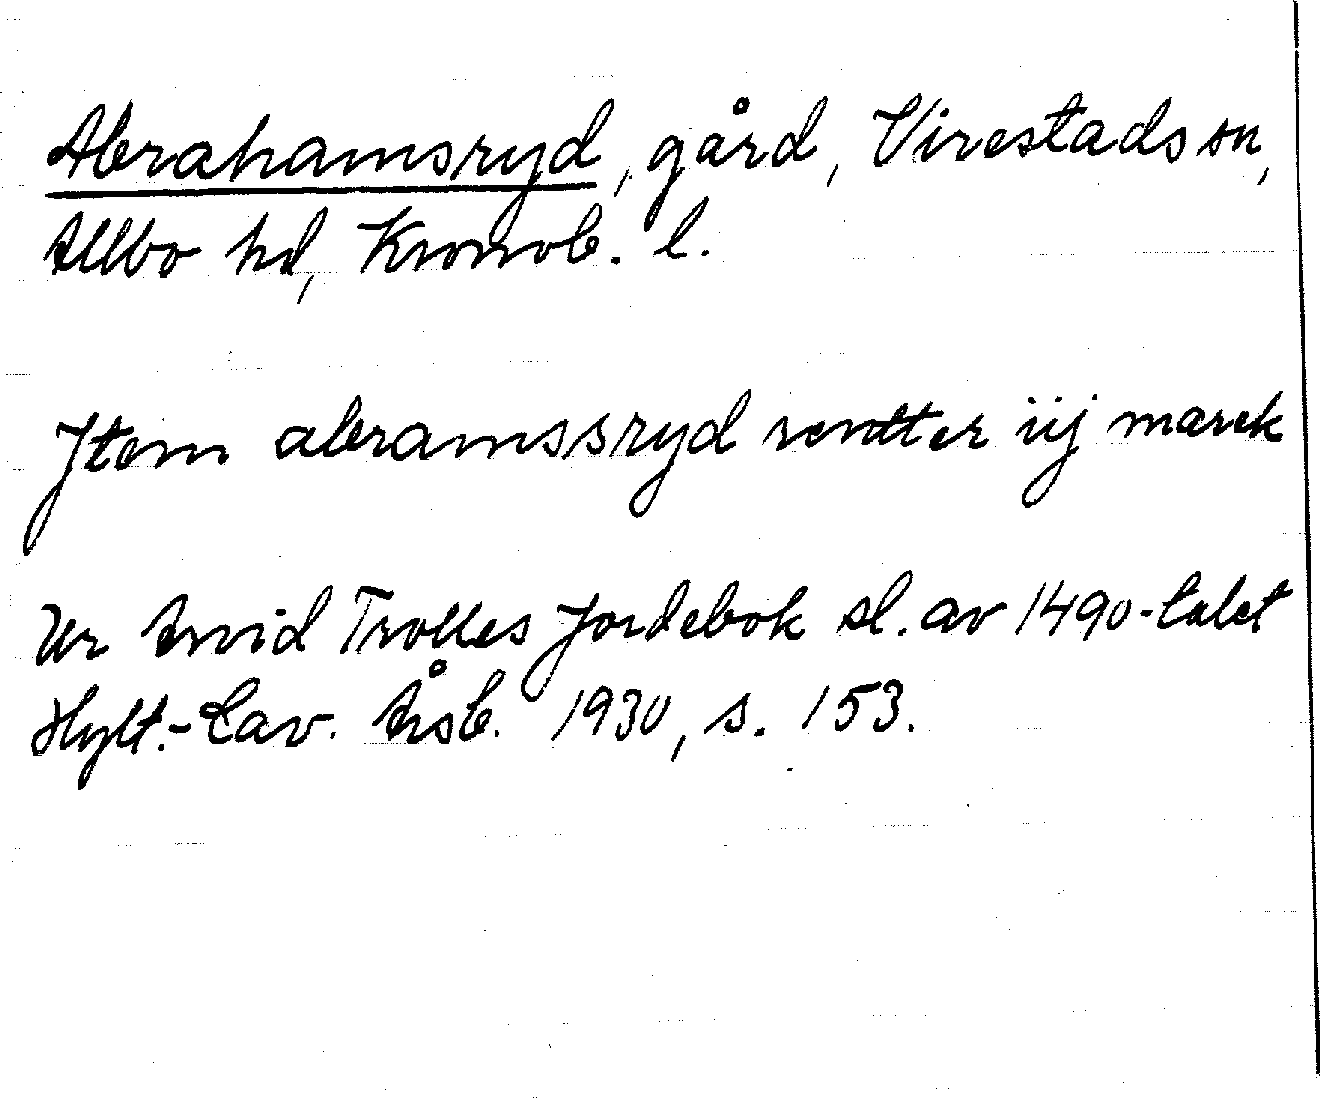 Abrahamsryd, gård, Virestads sn,
Allbo hd, Kronob. l.
Jtem abramssryd rentter iij marck
Ur Arvid Trolles Jordebok sl. av 1490-talet
Hylt.-Cav. Årsb. 1930, s. 153.